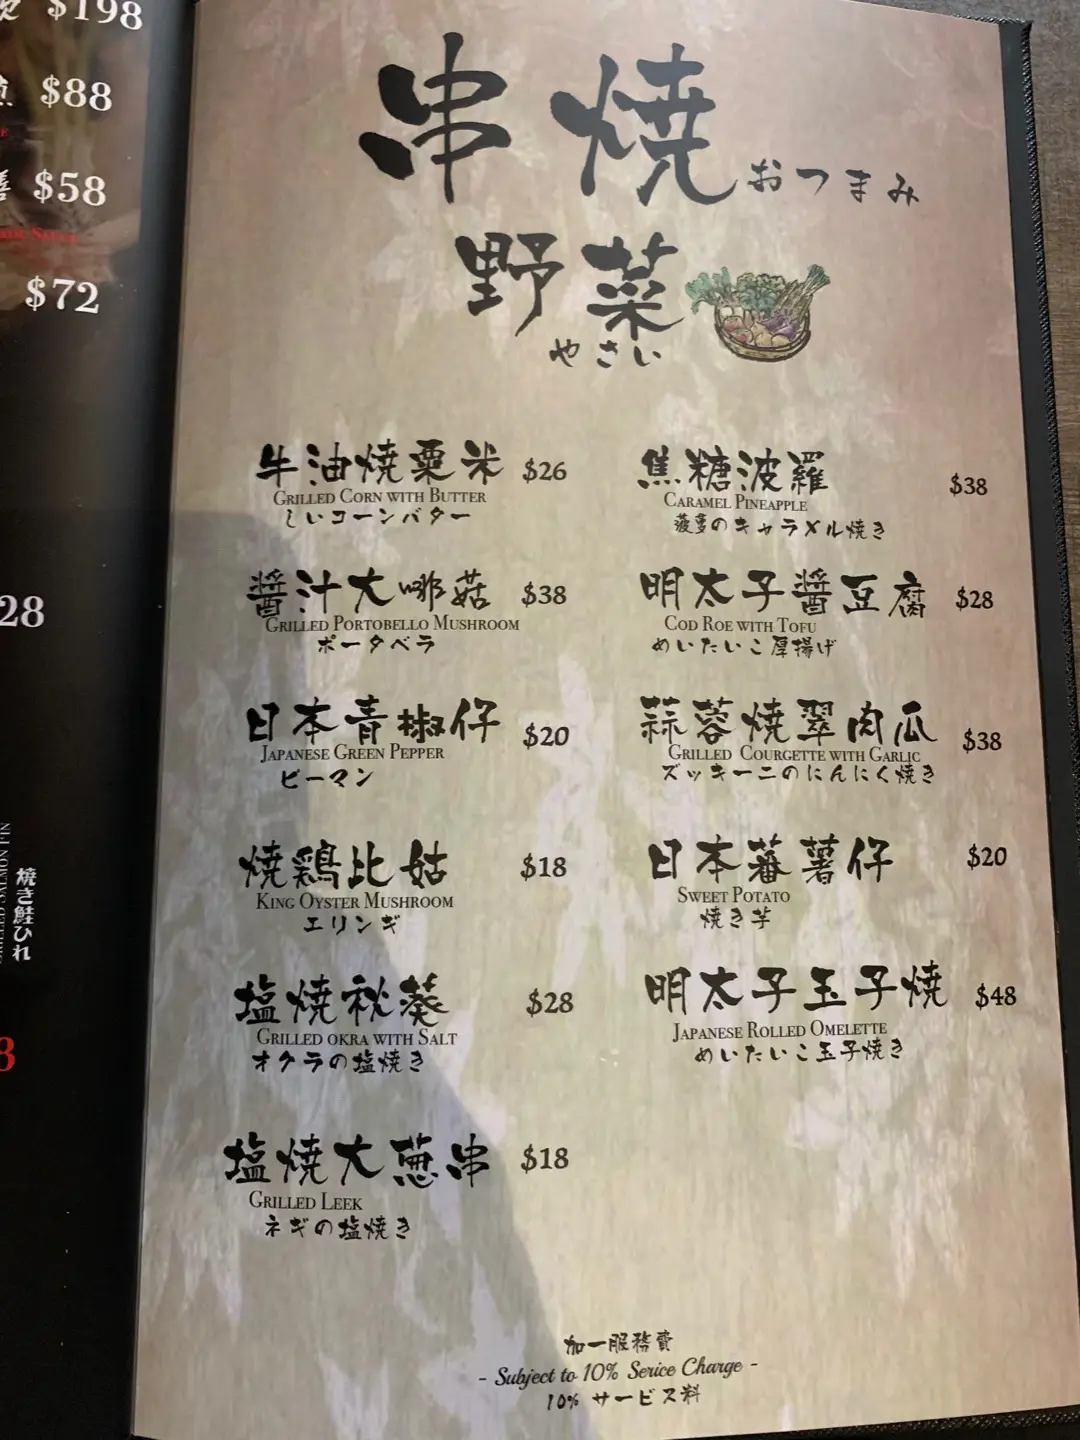 $198
$88
$58
$72
28
焼き鮭ひれ
8
串焼 おつまみ
野菜
やさい
牛油燒粟米 $26
Grilled Corn with Butter
しいコーンバター
醬汁大啡菇 $38
Grilled Portobello Mushroom
ポータベラ
日本青椒仔 $20
Japanese Green Pepper
ピーマン
焼鶏比菇 $18
King Oyster Mushroom
エリンギ
塩焼秋葵 $28
Grilled okra with Salt
オクラの塩焼き
塩焼大葱串 $18
Grilled Leek
ネギの塩焼き
焦糖波羅 $38
Caramel Pineapple
菠萝のキャラメル焼き
明太子醬豆腐 $28
Cod Roe with Tofu
めいたいこ厚揚げ
蒜蓉燒翠肉瓜 $38
Grilled Courgette with Garlic
ズッキーニのにんにく焼き
日本蕃薯仔 $20
Sweet Potato
焼き芋
明太子玉子焼 $48
Japanese Rolled Omelette
めいたいこ玉子焼き
加一服務費
- Subject to 10% Serice Charge -
10% サービス料